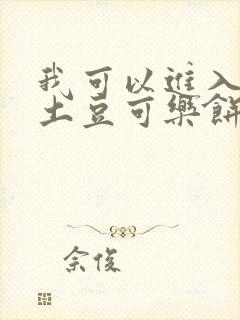 我可以進入
土豆可樂餅
佘俊